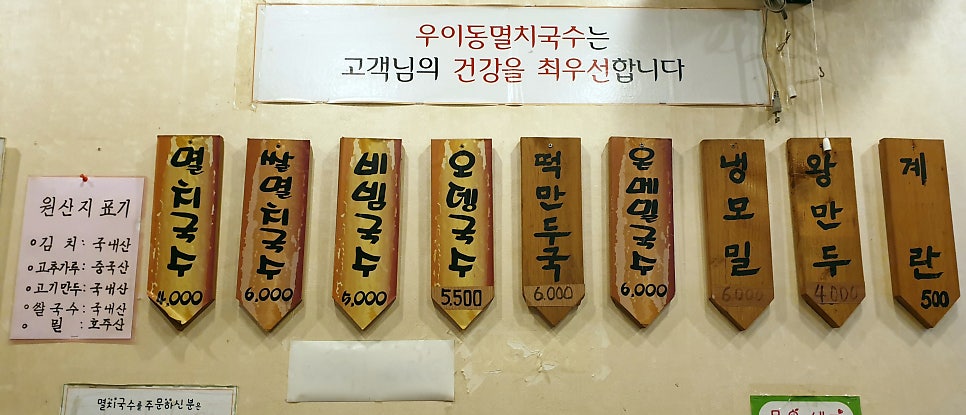 우이동멸치국수는
고객님의 건강을 최우선합니다
원산지 표기
김치 : 국내산
고추가루 : 중국산
고기만두 : 국내산
쌀국수 : 국내산
밀 : 호주산
멸치국수
4,000
쌀멸치국수
6,000
비빔국수
5,000
오뎅국수
5,500
떡만두국
6,000
온메밀국수
6,000
냉모밀
6,000
왕만두
4,000
계란
500
멸치국수를 주문하신분은